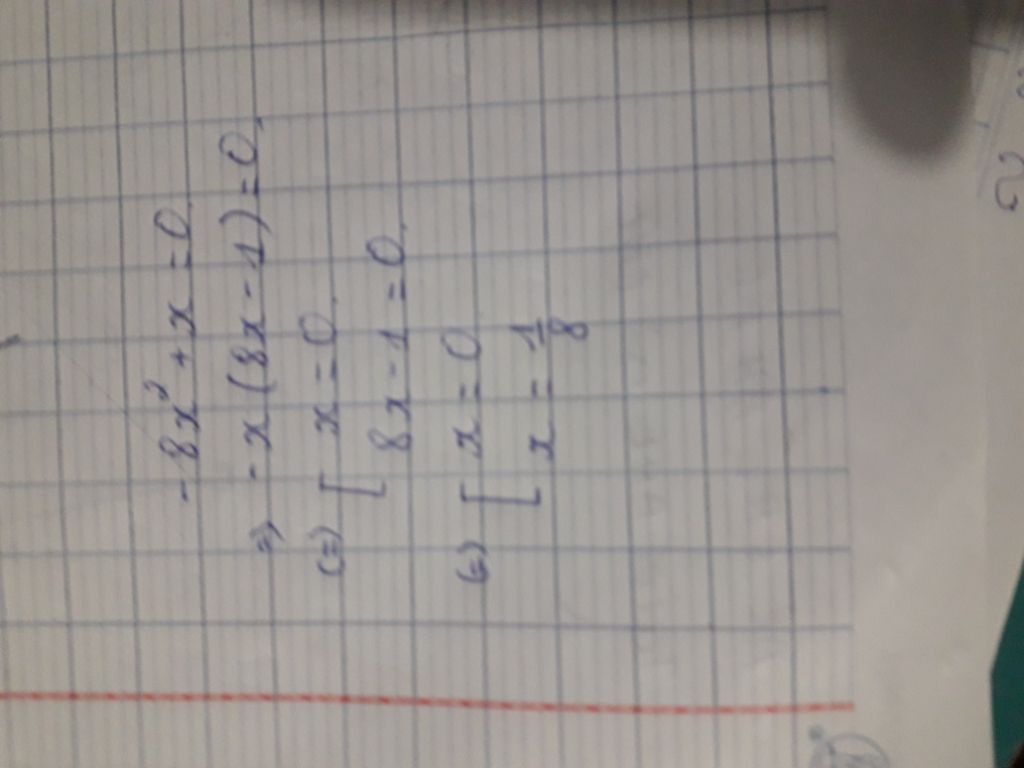 -8x² + x = 0
=> -x(8x - 1) = 0
(=) [ x = 0
8x - 1 = 0
(=) [ x = 0
x = 1/8